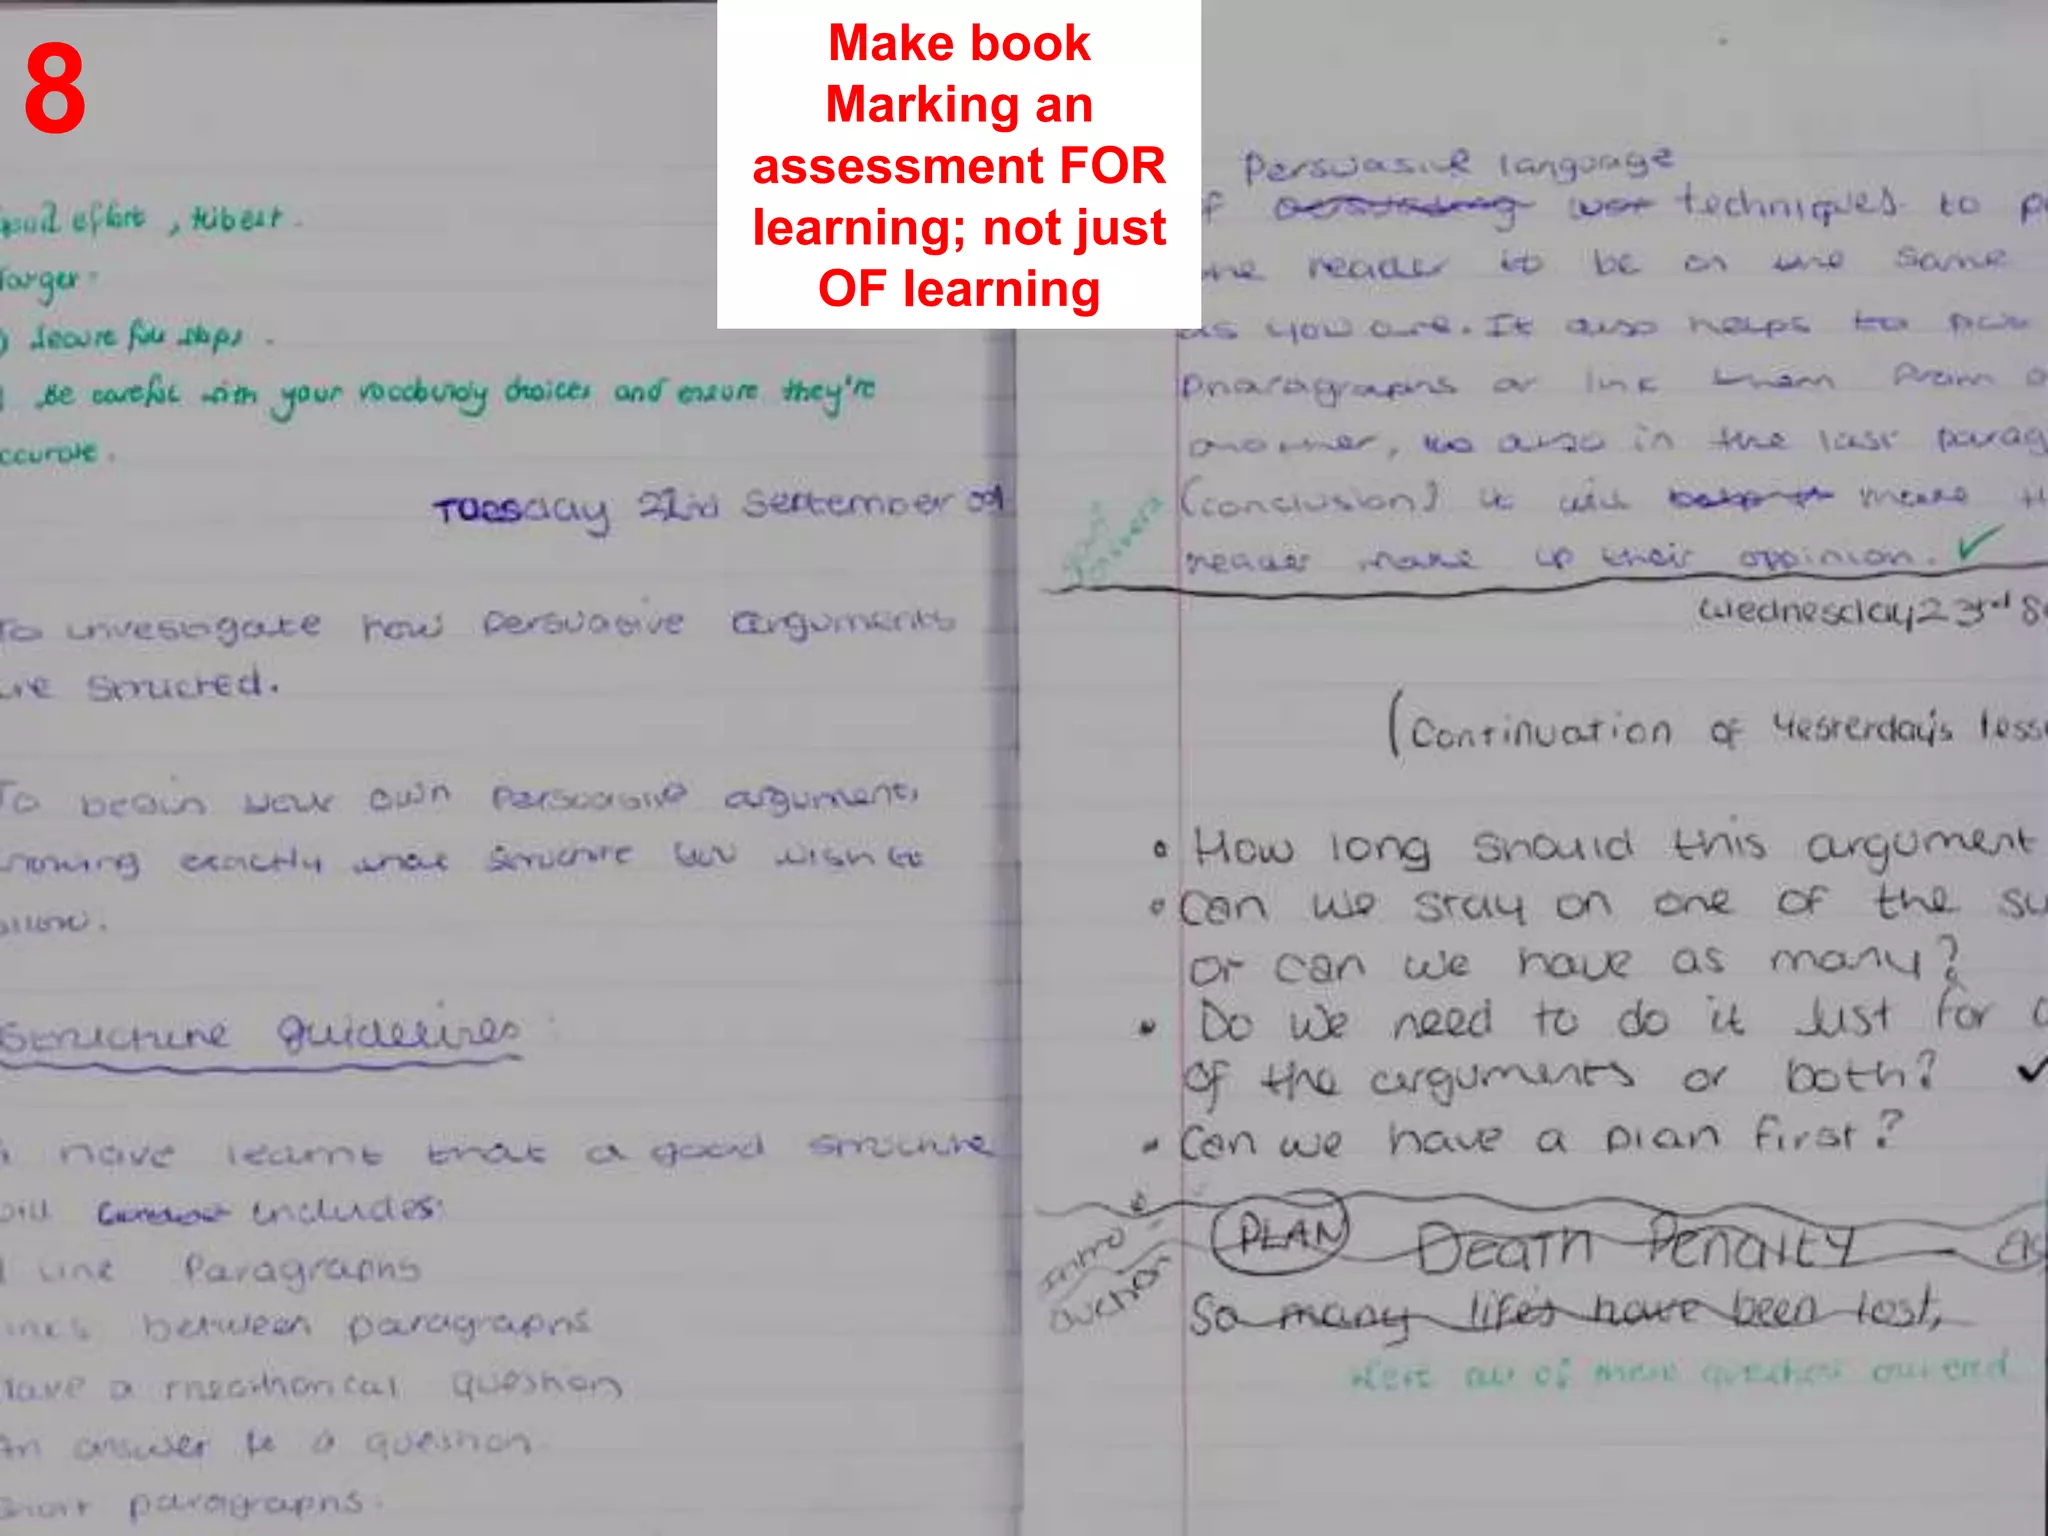 8
Make book
Marking an
assessment FOR
learning; not just
OF learning
good effort, Kibest.
Target:
secure full stops.
Be careful with your vocabulary choices and ensure they're
ccurate.
Tuesday 22nd September 09
To investigate how persuasive arguments
are structed.
To begin your own persuasive argument,
knowing exactly what structure you wish to
follow.
Structure guidelines:
I have learnt that a good structure
will includes:
Line Paragraphs
inks between paragraphs
Have a rheothorical question
An answer to a question.
Short paragraphs.
Persuasive language
techniques to
the reader to be on the same
as you are. It also helps to
pharagraphs or link them from
another, also in the last parag
(conclusion) it will make th
reader make up their oppinion. ✓
Wednesday 23rd Se
(Continuation of Yesterday's less
• How long should this argument
• Can we stay on one of the su
or can we have as many?
• Do we need to do it Just for o
of the arguments or both? ✓
• Can we have a plan first?
Intro
duction
PLAN Death Penalty
So many life's have been lost,
question